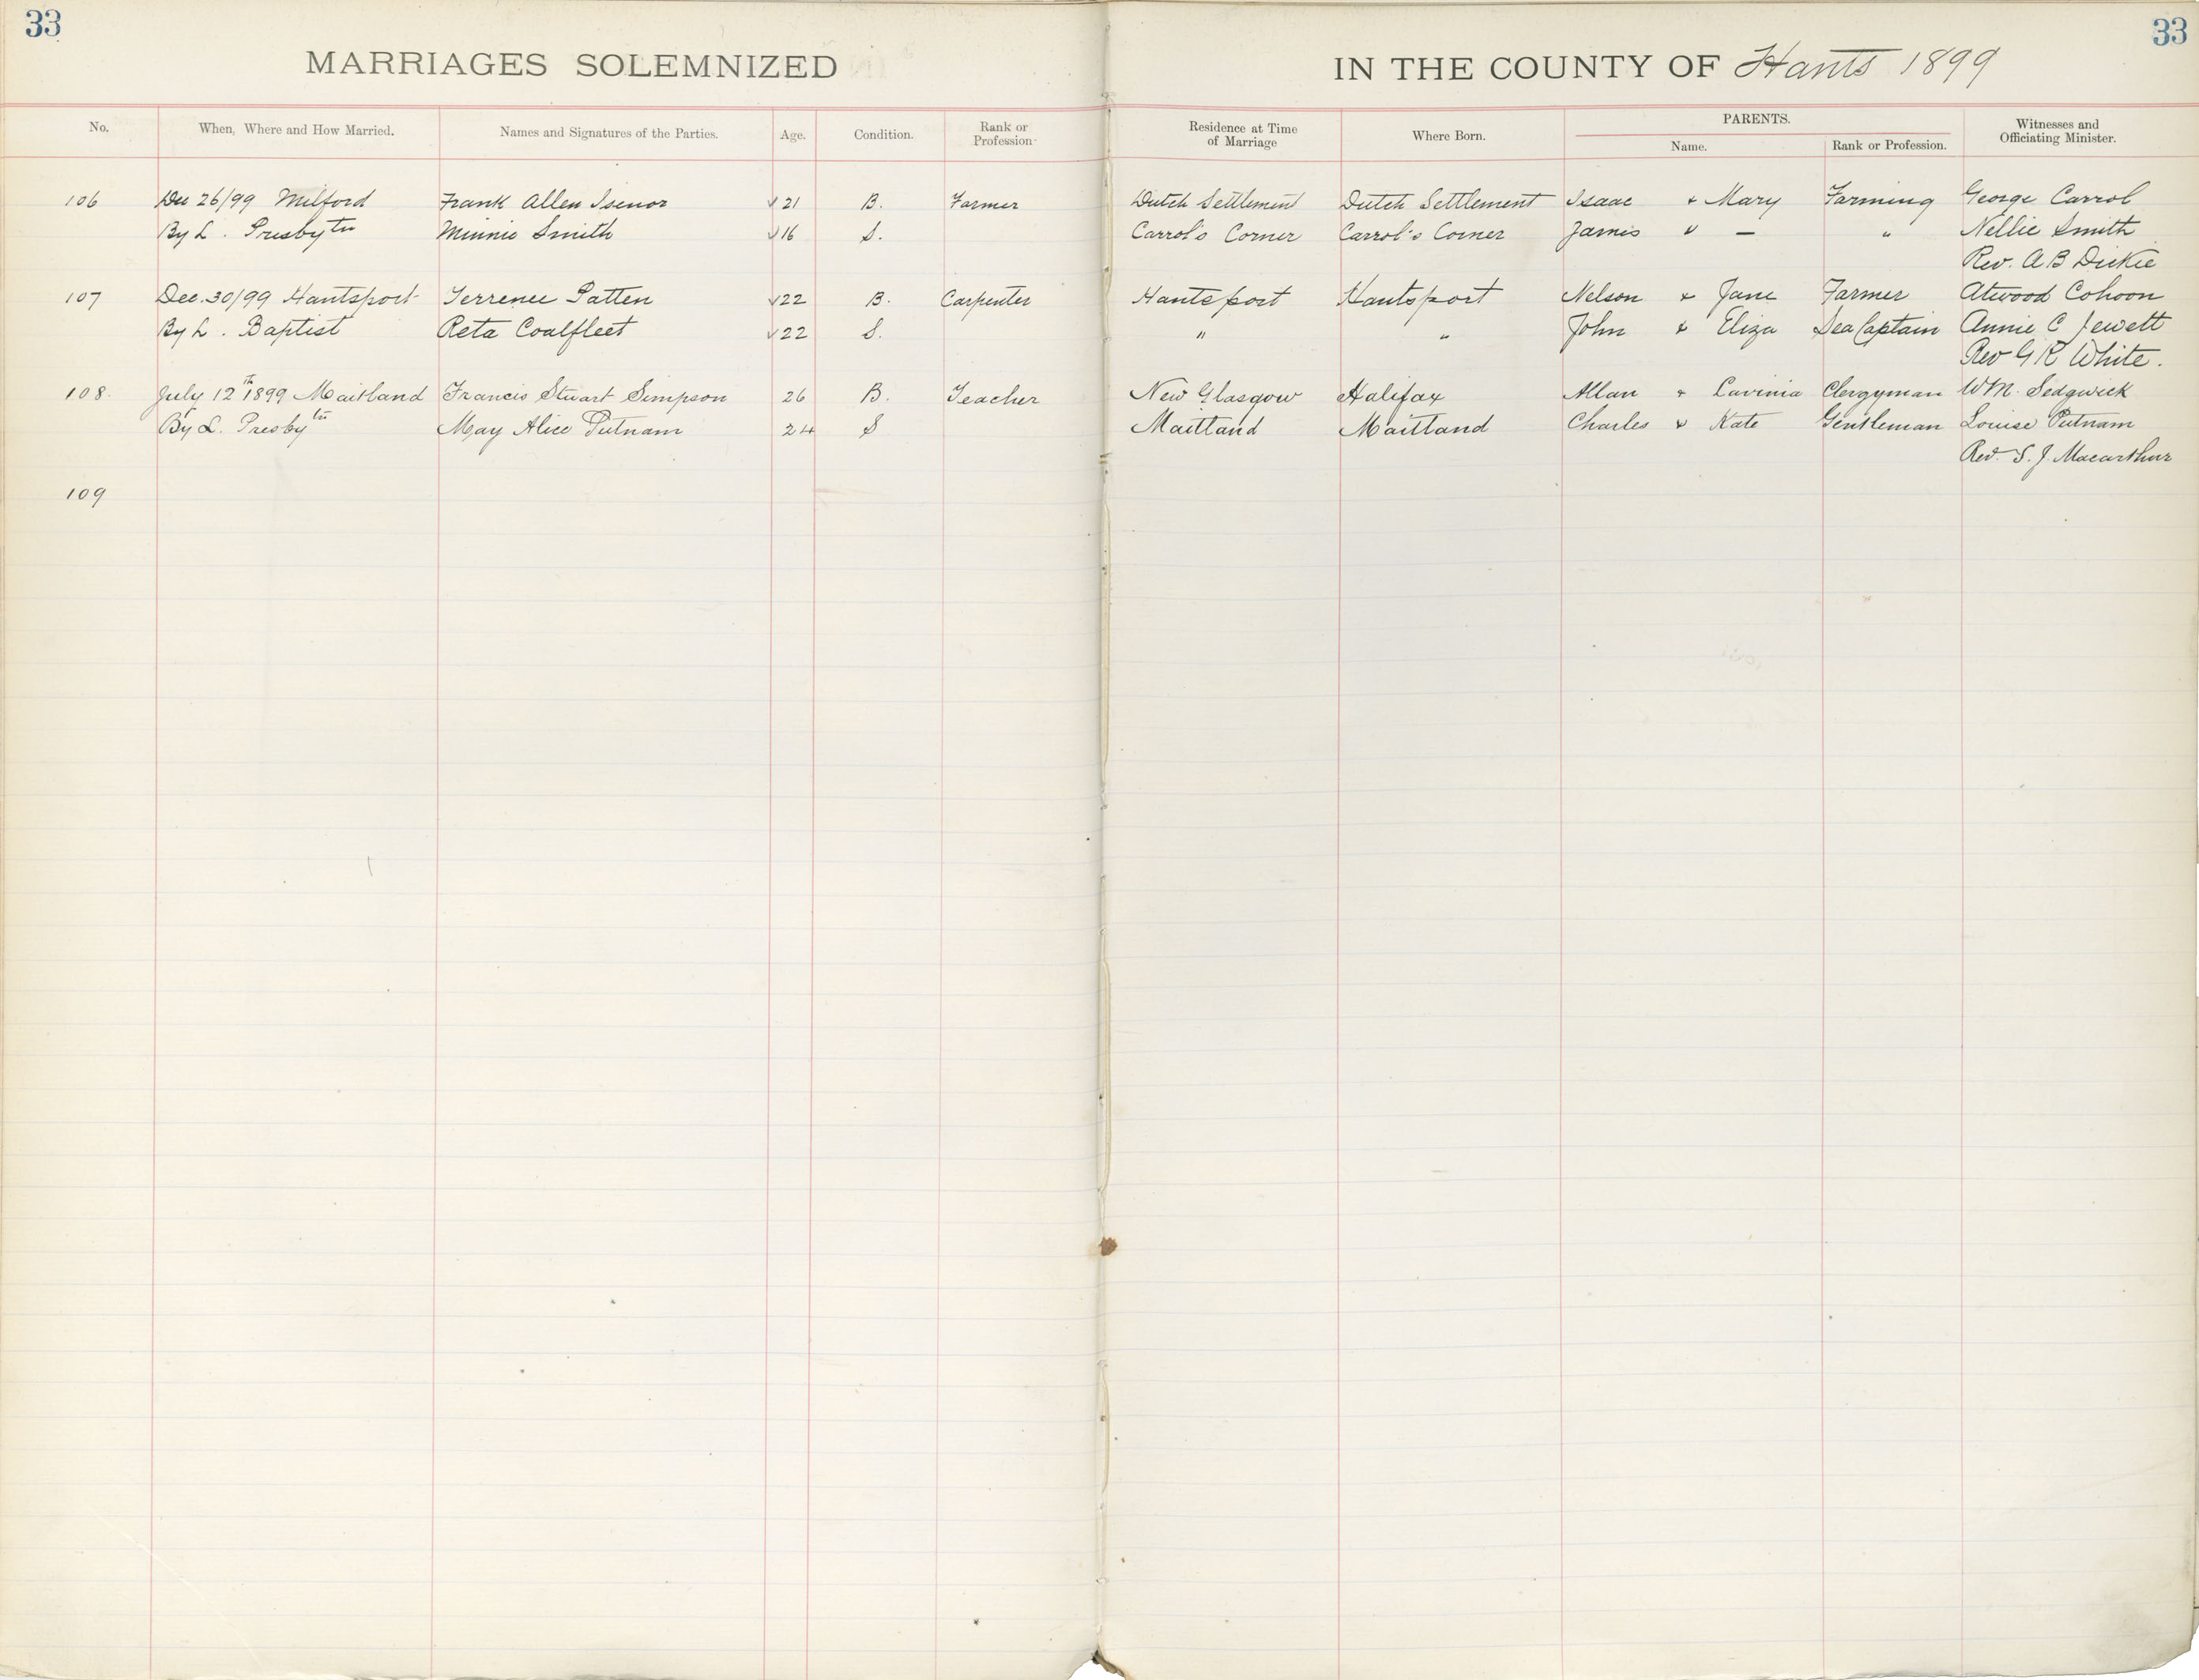 33
33
MARRIAGES SOLEMNIZED
IN THE COUNTY OF Hants 1899
No. When, Where and How Married. Names and Signatures of the Parties. Age. Condition. Rank or Profession. Residence at Time of Marriage Where Born. PARENTS. Name. Rank or Profession. Witnesses and Officiating Minister.
106 Dec 26/99 Milford Frank Allen Isenor √21 B. Farmer Dutch Settlement Dutch Settlement Isaac & Mary Farming George Carrol
By L. Presbytn Minnie Smith √16 S. Carrol's Corner Carrol's Corner James & — " Nellie Smith
Rev. A B Dickie
107 Dec. 30/99 Hantsport Terrence Patten √22 B. Carpenter Hantsport Hantsport Nelson & Jane Farmer Atwood Cohoon
By L. Baptist Reta Coalfleet √22 S. " " John & Eliza Sea Captain Annie C Jewett
Rev G R White.
108. July 12th 1899 Maitland Francis Stuart Simpson 26 B. Teacher New Glasgow Halifax Allan & Lavinia Clergyman Wm. Sedgwick
By L. Presbytn May Alice Putnam 24 S Maitland Maitland Charles & Kate Gentleman Louise Putnam
Rev. S. J. Macarthur
109